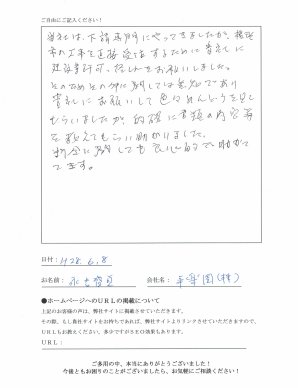 ご自由にご記入ください！
当社は、下請専門にやってきましたが、
市の工事を直接受注するために貴社に
建設業許可、経審をお願いしました。
そのためその他に関しては無知であり
貴社にお願いして色々めんどうを見て
もらいましたが、的確に書類の内容等
を教えてもらい助かりました。
料金に関しても良心的で助かっ
てます。
日付：H28.6.8
お名前： 会社名：平楽園(株)
●ホームページへのＵＲＬの掲載について
上記のお客様の声は、弊社サイトに掲載させていただきます。
その際、もし御社サイトをお持ちであれば、弊社サイトよりリンクさせていただきますので、
ＵＲＬもお教えください。多少ですがＳＥＯ効果もあります。
ＵＲＬ：
ご多用の中、本当にありがとうございました！
今後ともお困りのことがございましたら、お気軽にご相談ください！